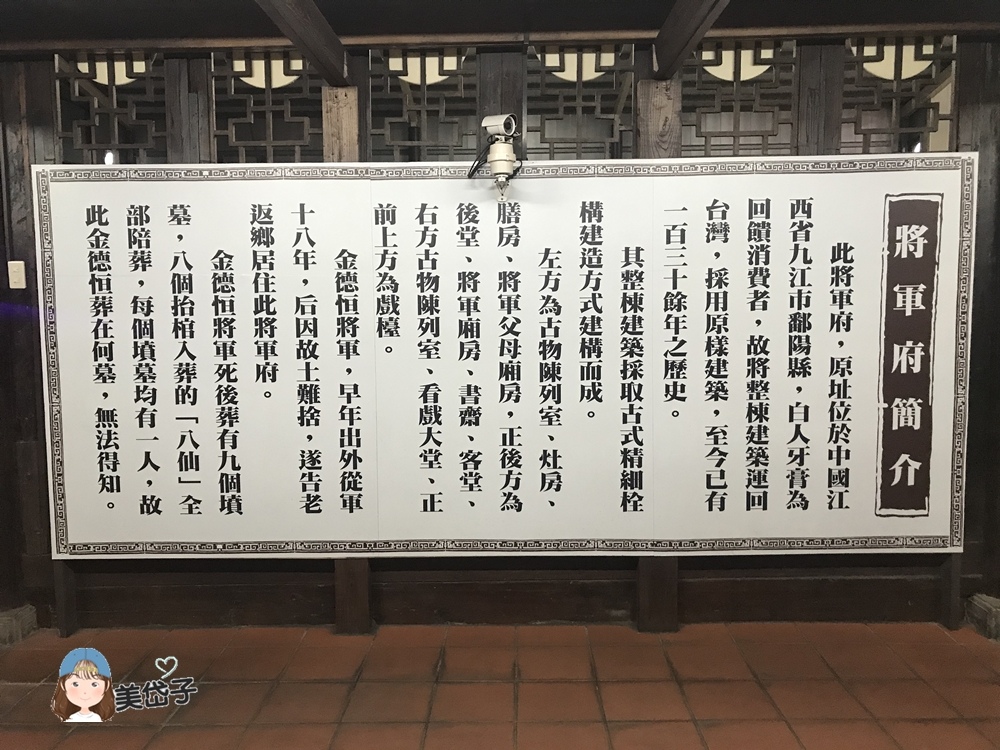 將軍府簡介
此將軍府，原址位於中國江
西省九江市鄱陽縣，白人牙膏為
回饋消費者，故將整棟建築運回
台灣，採用原樣建築，至今已有
一百三十餘年之歷史。
其整棟建築採取古式精細栓
構建造方式建構而成。
左方為古物陳列室、灶房、
膳房、將軍父母廂房，正後方為
後堂、將軍廂房、書齋、客堂、
右方古物陳列室、看戲大堂、正
前上方為戲檯。
金德恒將軍，早年出外從軍
十八年，后因故土難捨，遂告老
返鄉居住此將軍府。
金德恒將軍死後葬有九個墳
墓，八個抬棺入葬的「八仙」全
部陪葬，每個墳墓均有一人，故
此金德恒葬在何墓，無法得知。
美岱子